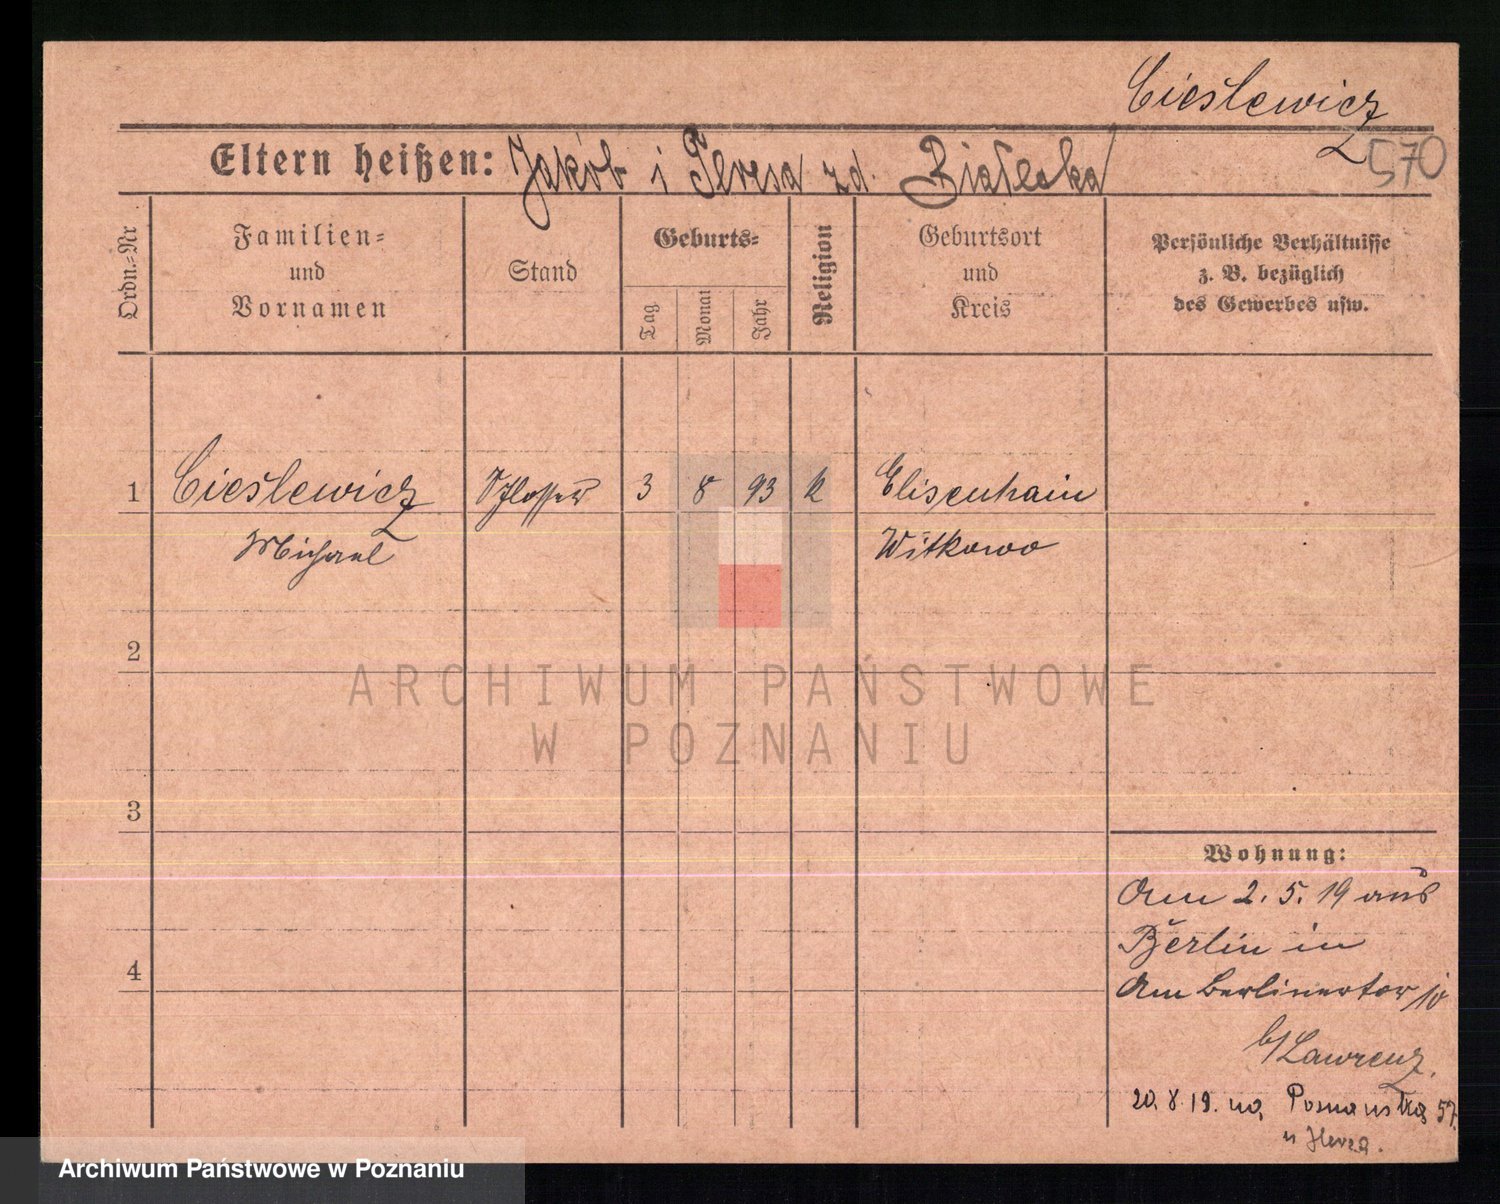 Cieślewicz
570
Eltern heißen: Jakób i Teresa zd. Białecka
Ordn.-Nr
Familien-
und
Vornamen
Stand
Geburts-
Tag
Monat
Jahr
Religion
Geburtsort
und
Kreis
Persönliche Verhältnisse
z. B. bezüglich
des Gewerbes usw.
1 Cieślewicz Schlosser 3 8 93 k Elisenhain
Michael Witkowo
2
ARCHIWUM PAŃSTWOWE
W POZNANIU
3
Wohnung:
Am 2. 5. 19 aus
Berlin in
4
Am Berlinertor 10
b/ Lawrenz.
20. 8. 19. na, Poznańska 57.
u
Archiwum Państwowe w Poznaniu